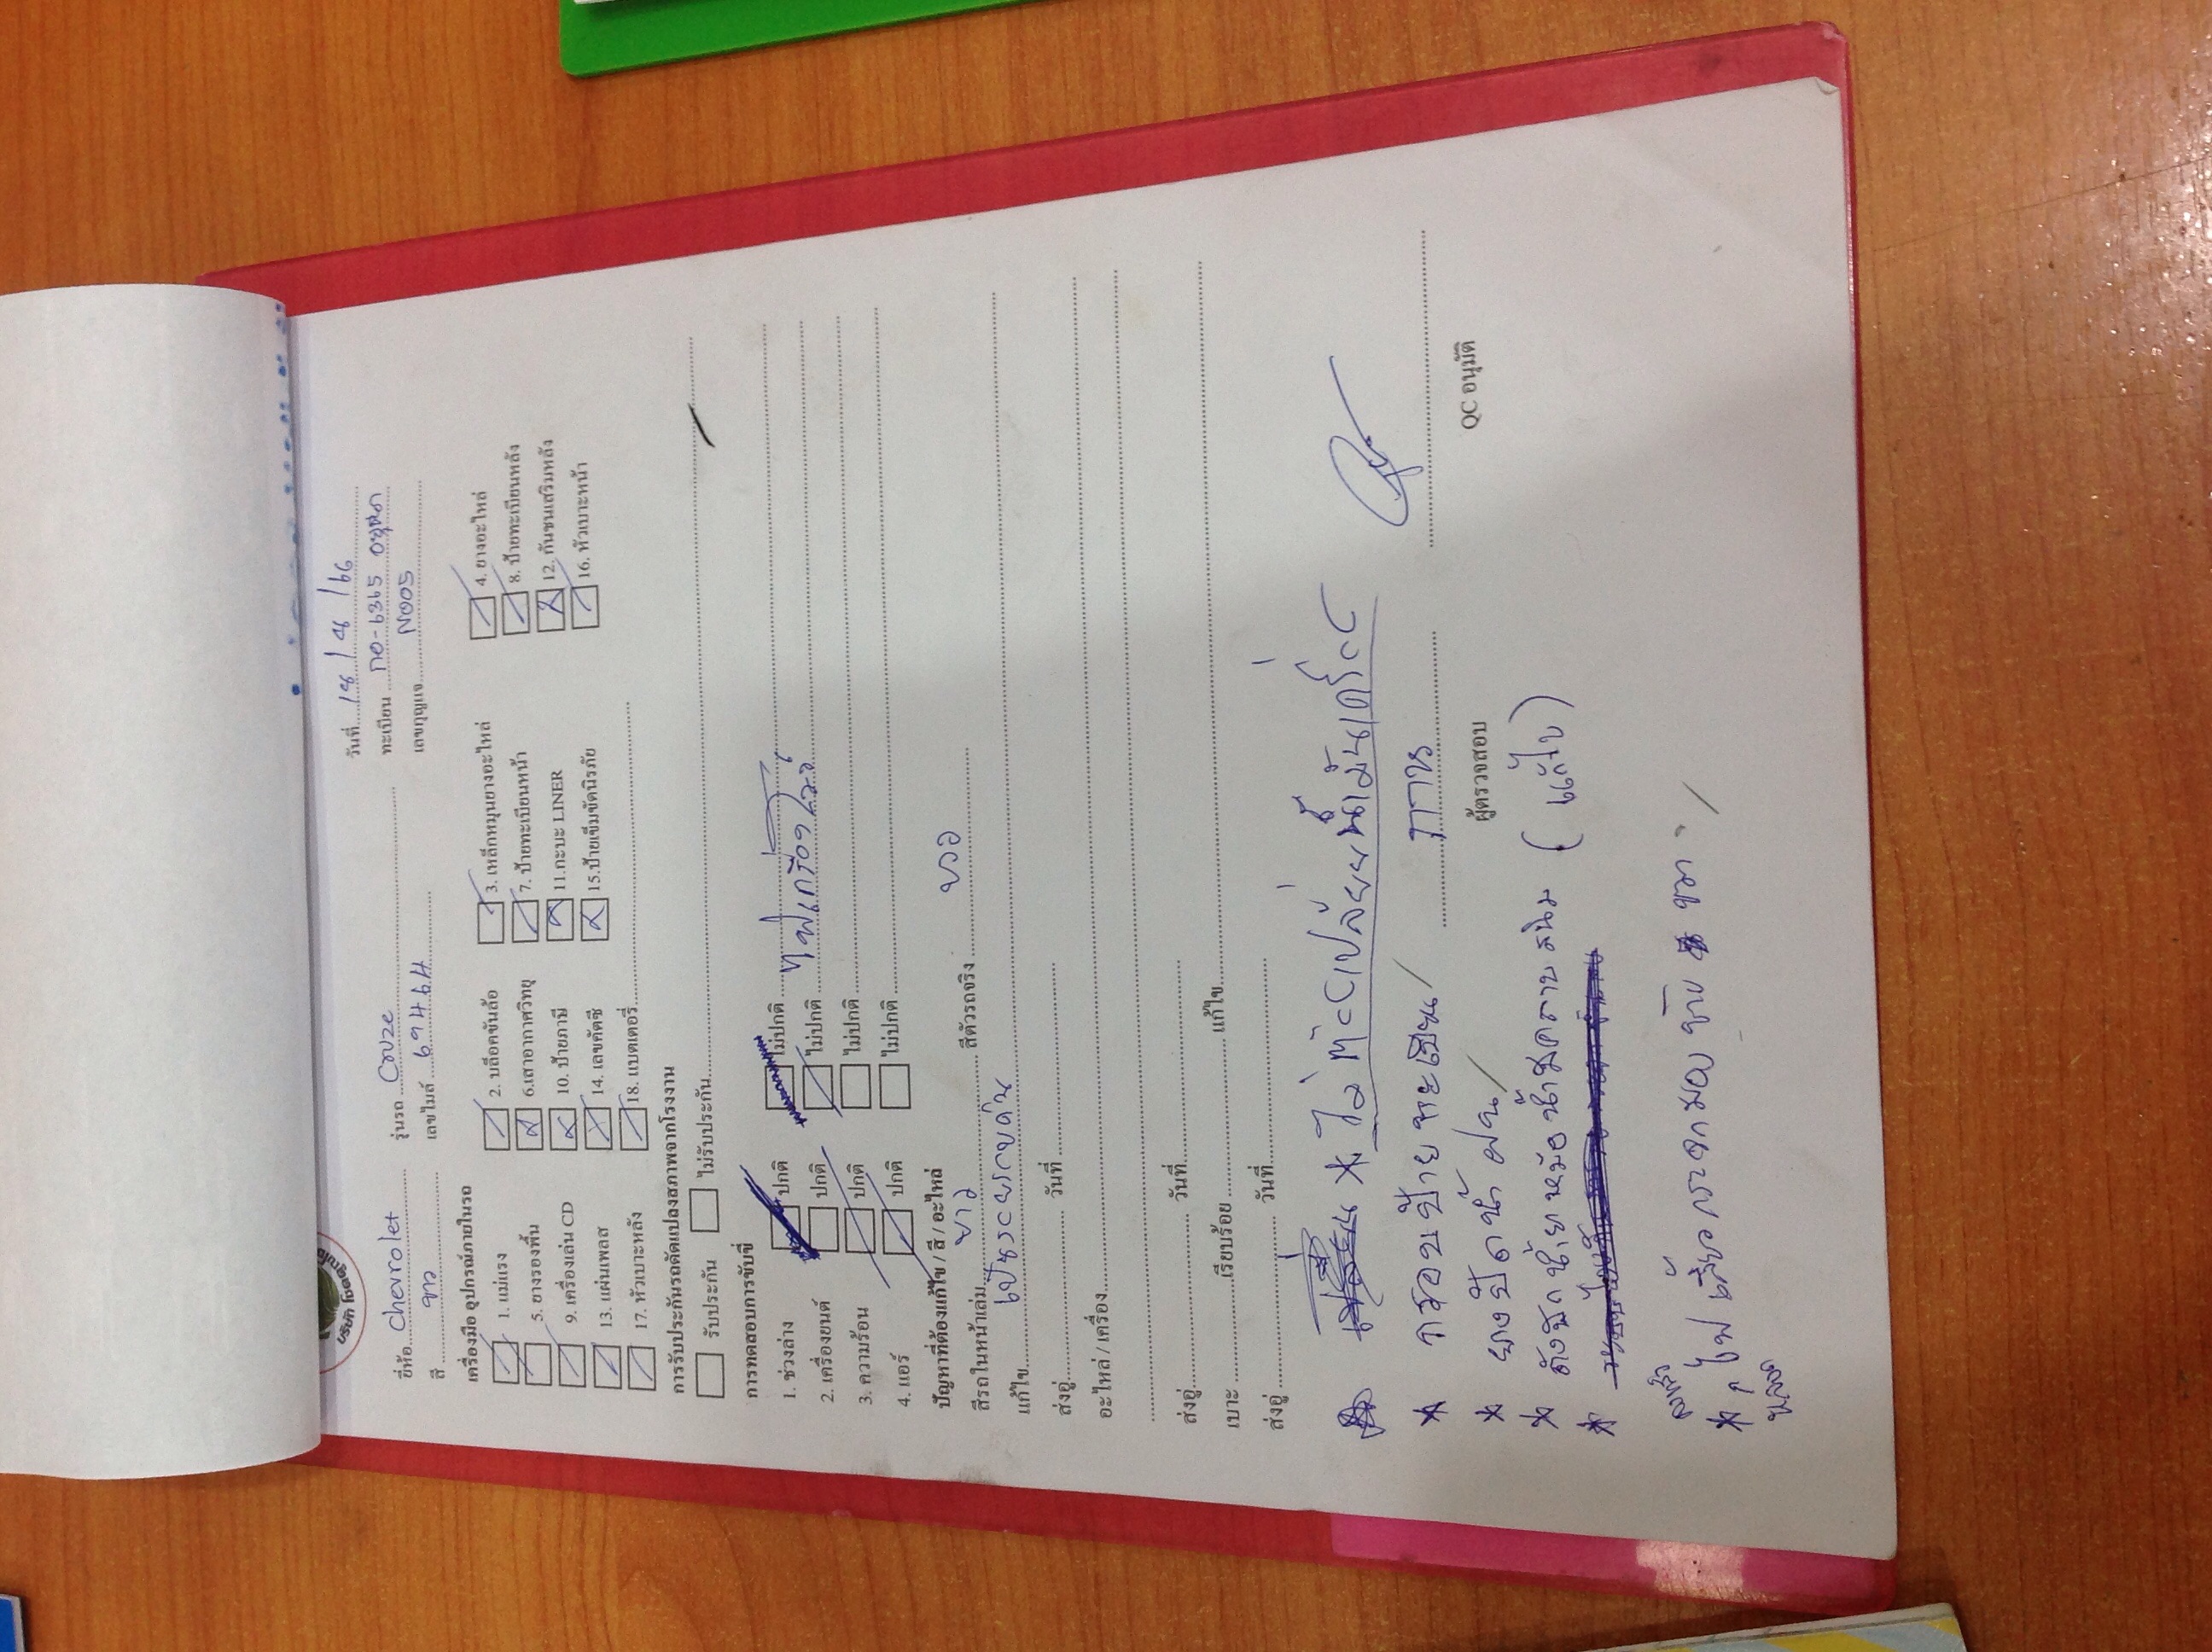 วันที่ 18 / 8 / 66
ยี่ห้อ Chevrolet รุ่นรถ Cruze ทะเบียน กอ-6365
สี ขาว เลขไมล์ 69464 เลขกุญแจ N005
เครื่องมือ อุปกรณ์ภายในรถ
1. แม่แรง 2. บล็อคขันล้อ 3. เหล็กหมุนยางอะไหล่ 4. ยางอะไหล่
5. ยางรองพื้น 6.เสาอากาศวิทยุ 7. ป้ายทะเบียนหน้า 8. ป้ายทะเบียนหลัง
9. เครื่องเล่น CD 10. ป้ายภาษี 11.กะบะ LINER 12. กันชนเสริมหลัง
13. แผ่นเพลส 14. เลขคัตซี 15.ป้ายเข็มขัดนิรภัย 16. หัวเบาะหน้า
17. หัวเบาะหลัง 18. แบตเตอรี่
การรับประกันรถดัดแปลงสภาพจากโรงงาน
รับประกัน ไม่รับประกัน
การทดสอบการขับขี่
1. ช่วงล่าง ปกติ ไม่ปกติ
2. เครื่องยนต์ ปกติ ไม่ปกติ ไฟเครื่องโชว์
3. ความร้อน ปกติ ไม่ปกติ
4. แอร์ ปกติ ไม่ปกติ
ปัญหาที่ต้องแก้ไข / สี / อะไหล่
สีรถในหน้าเล่ม ขาว สีตัวรถจริง ขาว
แก้ไข
ส่งอู่ วันที่
อะไหล่ / เครื่อง
ส่งอู่ วันที่
เบาะ เรียบร้อย แก้ไข
ส่งอู่ วันที่
* ไม่ต้องเปลี่ยนน้ำมันเครื่อง
* กรอบป้ายทะเบียน
ผู้ตรวจสอบ QC อนุมัติ
* ยางปัดน้ำฝน
* ถังพักน้ำหม้อน้ำมีคราบสนิม (แก้ไข)
* ไฟเลี้ยวกระจกมองข้าง ขวา